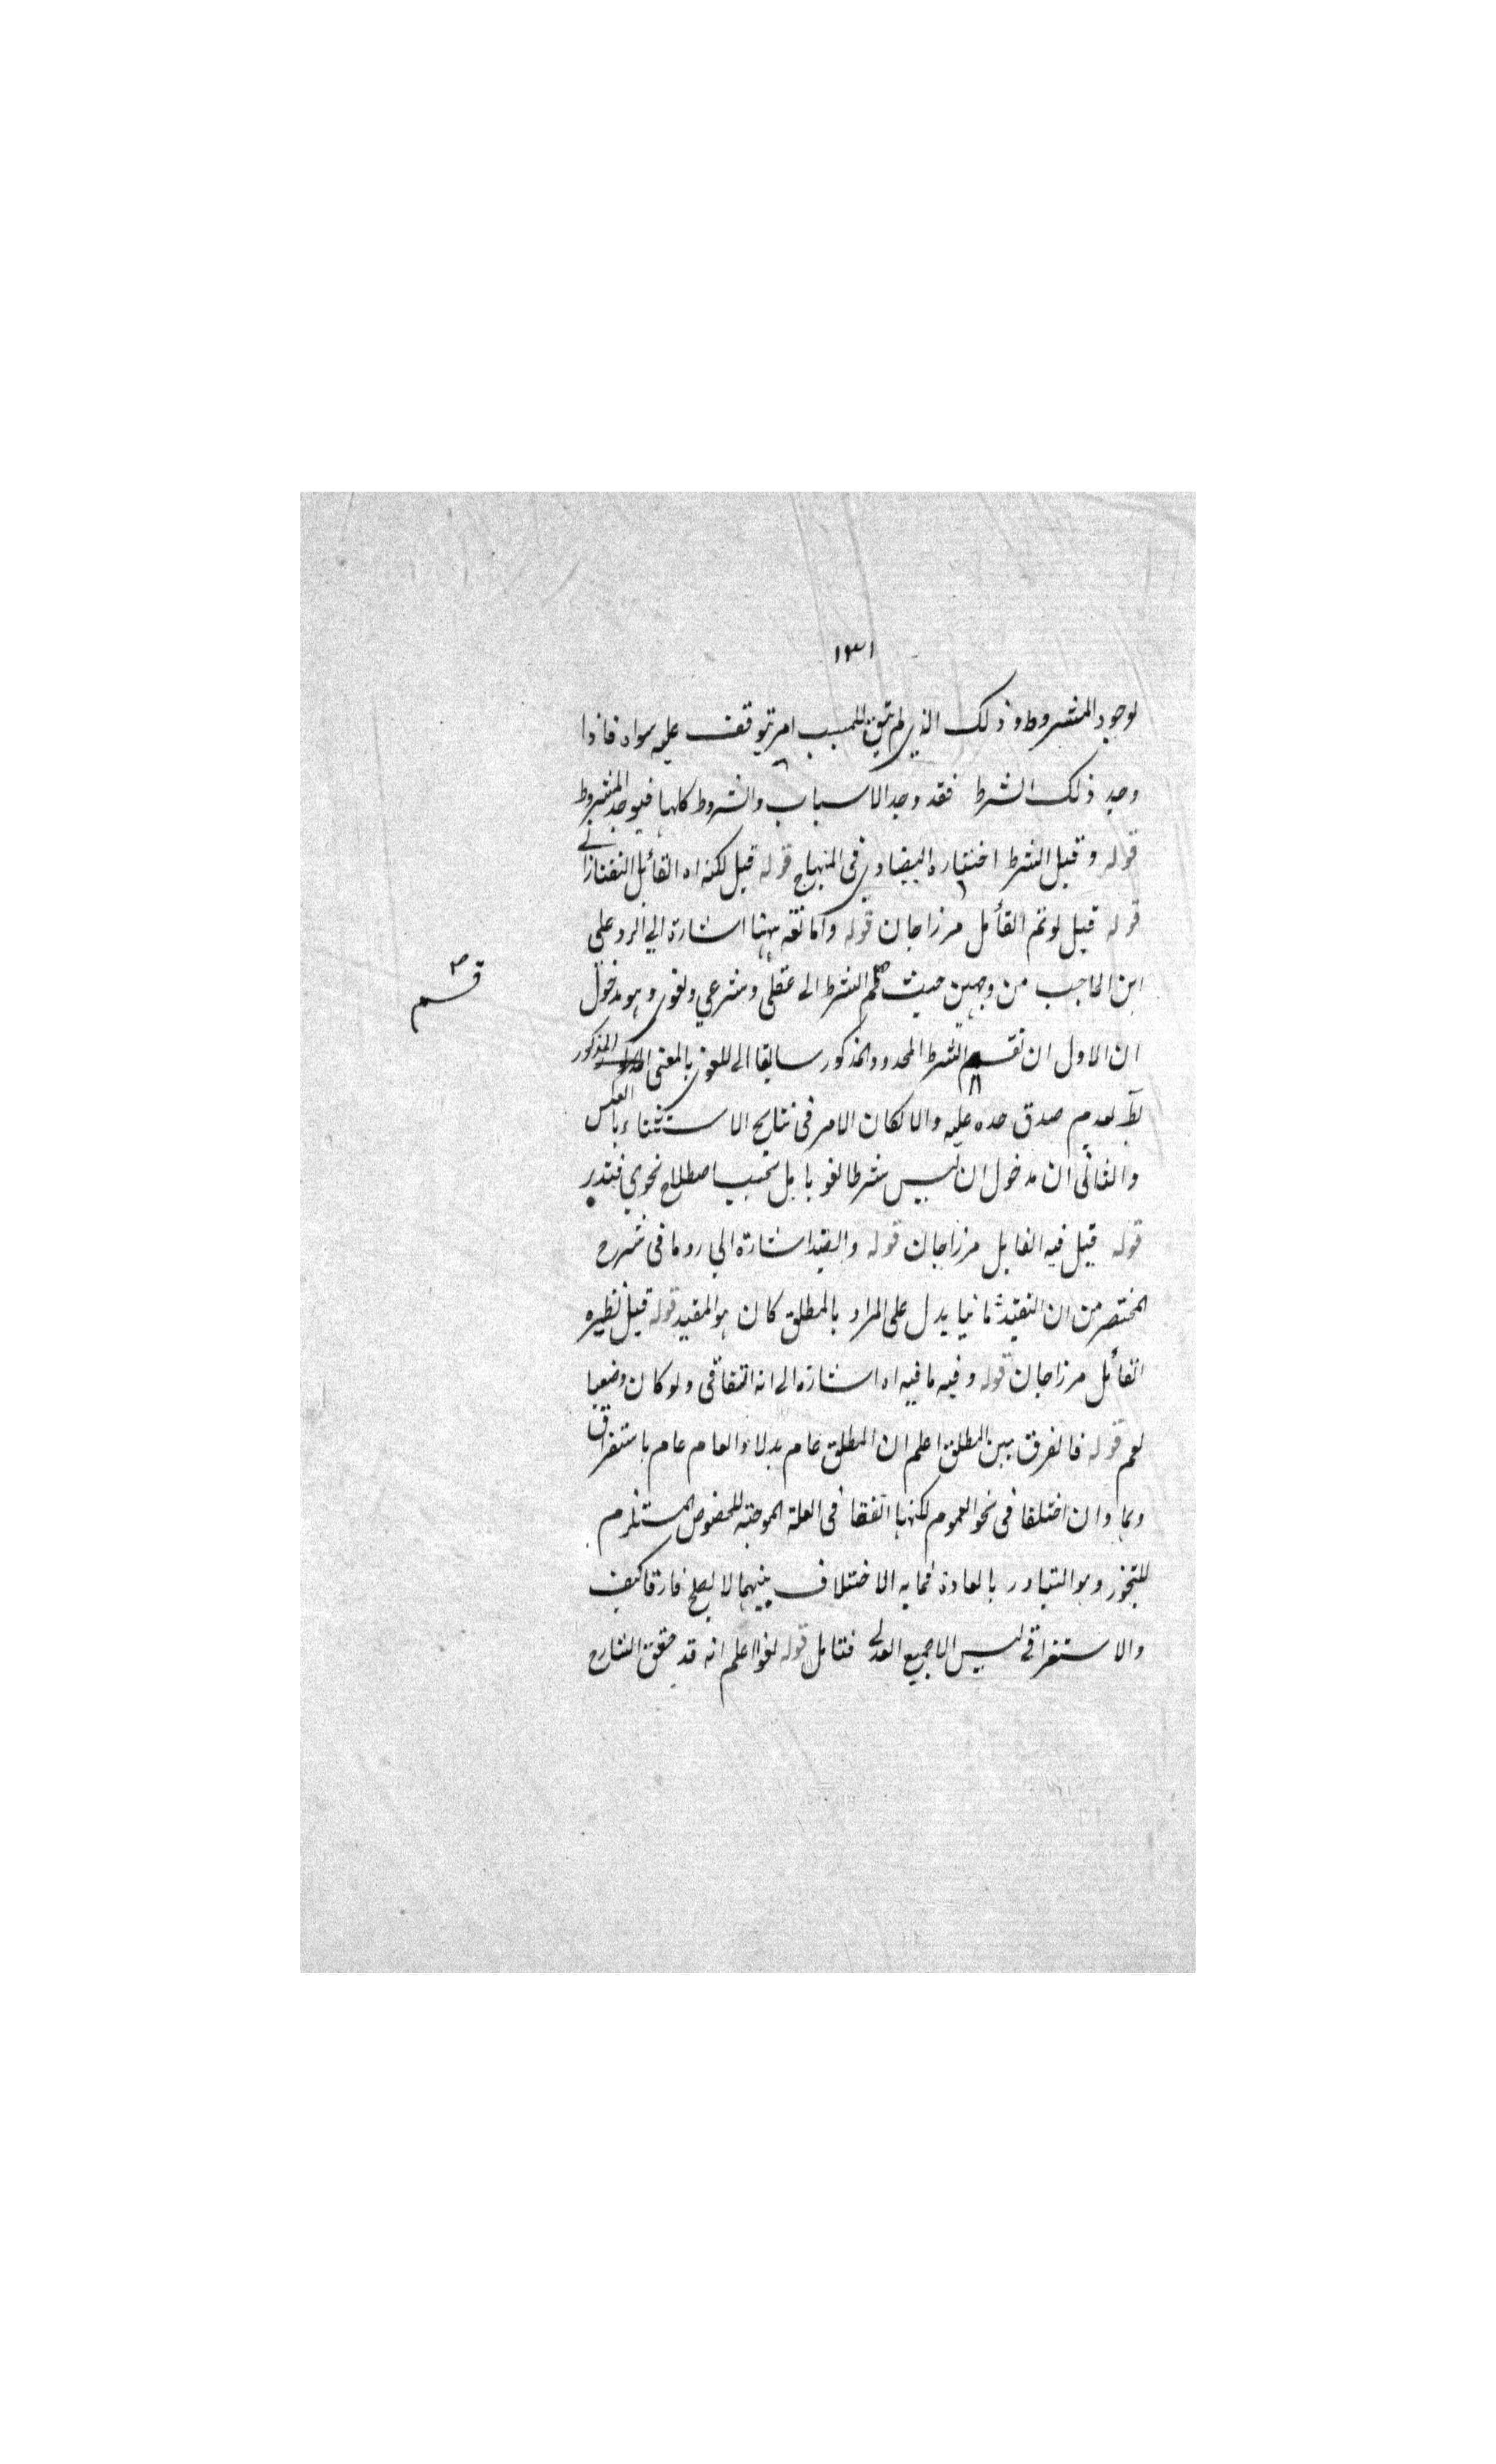 ١٣١
لوجود المشروط وذلك الذي لم يبق للمسبب امر يتوقف عليه سواه فاذا
وجد ذلك الشرط فقد وجد الاسباب والشروط كلها فيوجد المشروط
قوله وقيل الشرط اختياره البيضاوي في المنهاج قوله قيل لكنه اه القائل التفتازاني
قوله قيل لو تم القائل مرزا جان قوله واما ههنا اشارة الي الرد على
ابن الحاجب من وجهين حيث قسم الشرط الى عقلي وشرعي ولغوي وهو مدخول
قسم
ان الاول ان تقسيم الشرط المحدود المذكور سابقا الى اللغوي بالمعنى المذكور
بط لعدم صدق حده عليه والا لكان الامر في نتايج الاستثناء بالعكس
والثاني ان مدخول ان ليس شرطا لغويا بل بحسب اصطلاح نحوي فتدبر
قوله قيل فيه القايل مرزا جان قوله والقيد اشارة الي رد ما في شرح
المختصر من ان التقييد ثانيا يدل على المراد بالمطلق كان هو المقيد قوله قيل نظيره
القائل مرزا جان قوله وفيه ما فيه اه اشارة الى انه اتفاقي ولو كان وضعيا
لعم قوله فالفرق بين المطلق اعلم ان المطلق عام بدلا والعام عام باستغراق
وهما وان اختلفا في نحو العموم لكنهما اتفقا في العلة الموجبة للخصوص المستلزم
للتجوز وهو التبادر بالعادة فما به الاختلاف بينهما لا يصلح فارقا كيف
والاستغراقي ليس الا جميع البدلي فتامل قوله لغوا اعلم انه قد حقق الشارح